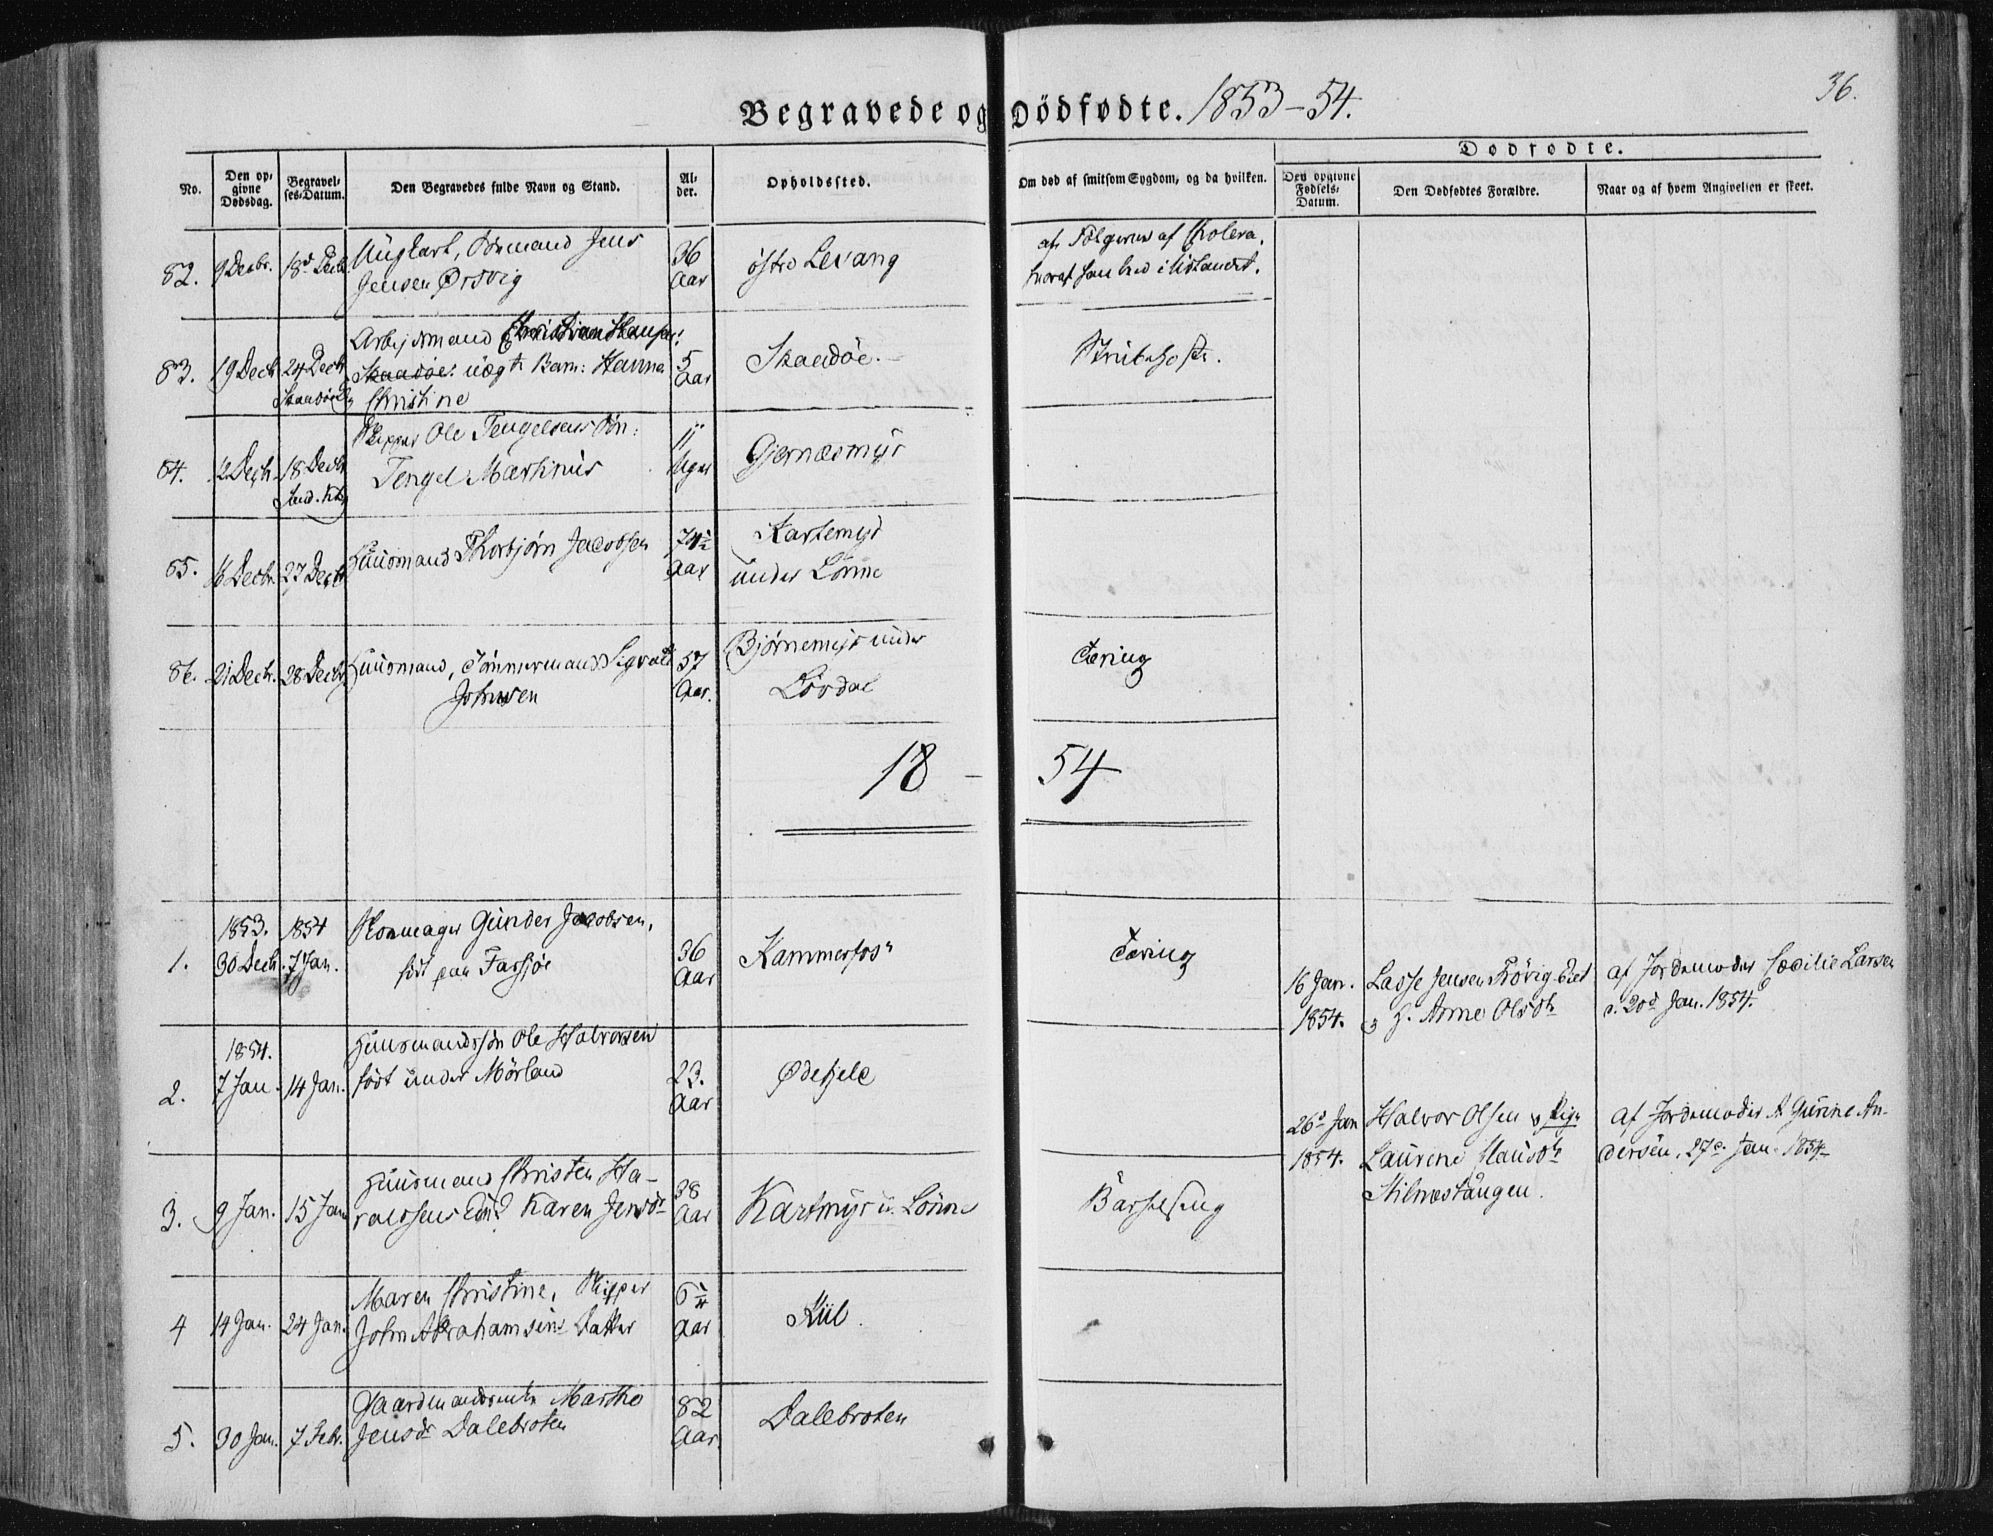 36.
Begravede og Dödfødte. 1853-54.
Dødfødte.
No.
Den op-
givne
Dødsdag.
Begravel-
ses-Datum.
Den Begravedes fulde Navn og Stand.
Al-
der.
Opholdssted.
Om død af smitsom Sygdom, og da hvilken.
Den opgivne
Fødsels-
Datum.
Den Dødfødtes Forældre.
Naar og af hvem Angivelsen er skeet.
82. 9 Decbr. 18d Decb
Ungkarl, Jens
Jensen Ørsvig
36
Aar
østre Levang
af Følgerne af Cholera,
hvoraf han led i Udlandet.
83. 19 Decb 24 Decb
Skaadöe
Arbejdsmand Christian Hansens
Skaadöe: uægte Barn: Hanna
Christine
5
Aar
Skaadöe.
Strubehoste.
84. 12 Decb. 18 Decb
Skipper Ole Tengelsens Søn:
Tengel Martinus
11
Uger
Gjernæsmyr
85. 16 Decbr. 27 Decb
Huusmand Thorbjørn Jacobsen
74½
Aar
Kartemyr
under Lönne
86. 21 Decb. 28 Decb
Huusmand, Tömmermand Sigvald
Johnsen
57
Aar.
Bjørnemyr under
Lövdal
Tæring
18 - 54
1853. 1854
1. 30 Decb. 7 Jan.
Skomager Gunder Jacobsen,
födt paa Farsjöe
36
Aar
Kammerfos
Tæring
16 Jan.
1854.
Lasse Jensen
& H. Anne Olsdtr
af Jordemoder Cæcilie Larsen
d. 20d Jan. 1854.
1854.
2. 7 Jan. 14 Jan.
Huusmandssøn Ole Halvorsen
födt under Mörland
23.
Aar
Ødekjele
26d Jan
1854.
Halvor Olsen & Pige
Laurine Clausdtr
Stilnestangen.
af Jordemoder A Gurine An-
dersen, 27d Jan. 1854
3. 9 Jan. 15 Jan
Huusmand Christen Ha-
raldsens Karen Jensdtr
38
Aar
Kartmyr u. Lönne
Barselseng
4 14 Jan. 24 Jan.
Maren Christine, Skipper
John Abrahamsens Datter
6¼
Aar
Kiil.
5. 30 Jan. 7 Febr.
Gaardmandsenke Marthe
Jensdr Dalebroten
82
Aar.
Dalebroten